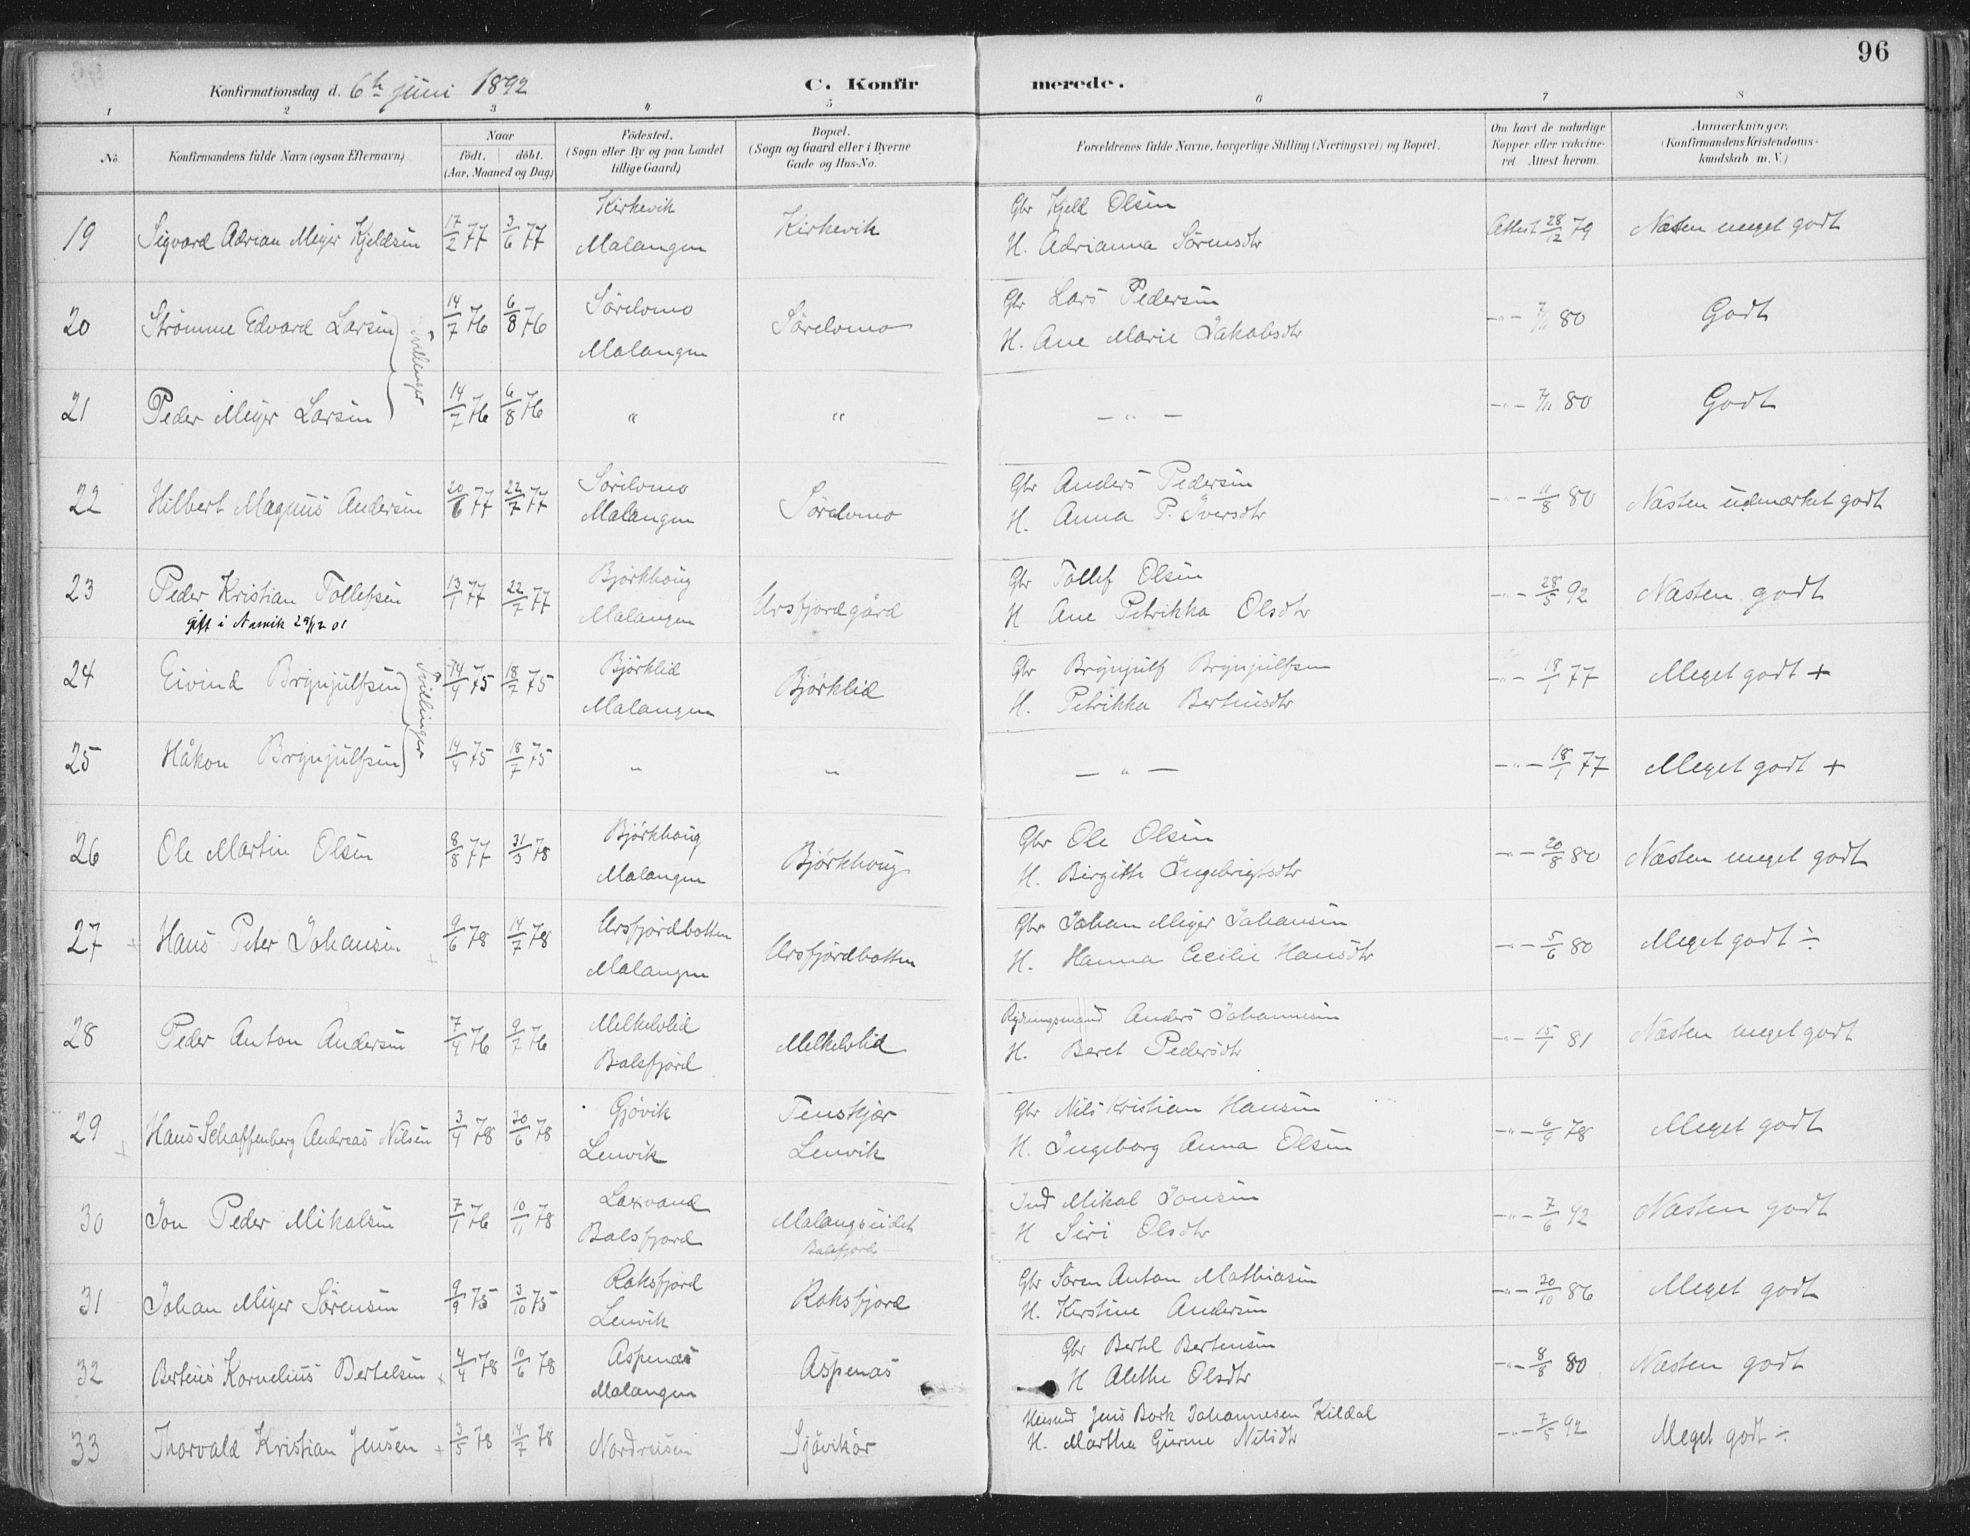 96
Konfirmationsdag d. 6te juni 1892 C. Konfirmerede.
1 2 3 4 5 6 7 8
No. Konfirmandens fulde Navn (ogsaa Efternavn) Naar født. døbt. (Aar, Maaned og Dag) Fødested. (Sogn eller By og paa Landet tillige Gaard) Bopæl. (Sogn og Gaard eller i Byerne Gade og Hus-No. Forældrenes fulde Navne, borgerlige Stilling (Næringsvei) og Bopæl. Om havt de naturlige Kopper eller vaccineret. Attest herom. Anmærkninger. (Konfirmandens Kristendomskundskab m. V.)
19 Sigvard Adrian Meyer Kjeldsen 17/2 77 3/6 77 Kirkevik Malangen Kirkevik Gbr Kjeld Olsen H. Adrianna Sørensdtr Attest 28/12 79 Næsten meget godt
20 Strømme Edvard Larsen 14/7 76 6/8 76 Sørelvmo Malangen Sørelvmo Gbr Lars Pedersen H. Ane Marie Jakobsdtr -"- 7/11 80 Godt
Tvillinger
21 Peder Meyer Larsen 14/7 76 6/8 76 " " -"- -"- 7/11 80 Godt
22 Hilbert Magnus Andersen 20/6 77 22/7 77 Sørelvmo Malangen Sørelvmo Gbr Anders Pedersen H. Anna P. Iversdtr -"- 11/8 80 Næsten udmærket godt
23 Peder Kristian Tollefsen 13/1 77 22/7 77 Bjørkhoug Malangen Ursfjordgård Gbr Tollef Olsen H Ane Petrikka Olsdtr -"- 28/5 92 Næsten godt
gift i Narvik 29/12 01
24 Eivind Brynjulfsen 14/4 75 18/7 75 Bjørklid Malangen Bjørklid Gbr Brynjulf Brynjulfsen H. Petrikka Bertheusdtr -"- 18/1 77 Meget godt +
Tvillinger
25 Håkon Brynjulfsen 14/4 75 18/7 75 " " -"- -"- 18/1 77 Meget godt +
26 Ole Martin Olsen 8/8 77 31/3 78 Bjørkhoug Malangen Bjørkhoug Gbr Ole Olsen H. Birgitte Ingebrigtsdtr -"- 20/8 80 Næsten meget godt
27 + Hans Peter Johansen + 9/6 78 14/7 78 Ursfjordbotten Malangen Ursfjordbotten Gbr Johan Meyer Johansen H. Hanna Cecilie Hansdtr -"- 5/6 80 Meget godt ÷
28 Peder Anton Andersen 7/4 76 9/7 76 Melkelvlid Balsfjord Melkelvlid Rydningsmand Anders Johannesen H. Beret Pedersdtr -"- 15/1 81 Næsten meget godt
29 + Hans Schaffenberg Andreas Nilsen 3/4 78 30/6 78 Gjøvik Lenvik Tenskjær Lenvik Gbr Nils Kristian Hansen H. Ingeborg Anna Olsen -"- 6/9 78 Meget godt
30 Jon Peder Mikalsen 7/1 76 10/11 78 Laxvand Balsfjord Malangseidet Balsfjord Ind Mikal Jonsen H Siri Olsdtr -"- 7/6 92 Næsten godt
31 Johan Meyer Sørensen 9/9 75 3/10 75 Roksfjord Lenvik Roksfjord Gbr Søren Anton Mathiasen H. Kerstine Andersen -"- 20/10 86 Meget godt
32 Berteus Kornelius Bertelsen + 4/4 78 10/6 78 Aspenæs Malangen Aspenæs Gbr Bertel Bertensen H Alethe Olsdtr -"- 8/8 80 Næsten godt
33 Thorvald Kristian Jensen + 3/5 78 14/7 78 Nordreisen Sjåvikør Jens Bork Johannesen Kildal H. Martha Gurine Nilsdtr -"- 7/5 92 Meget godt ÷